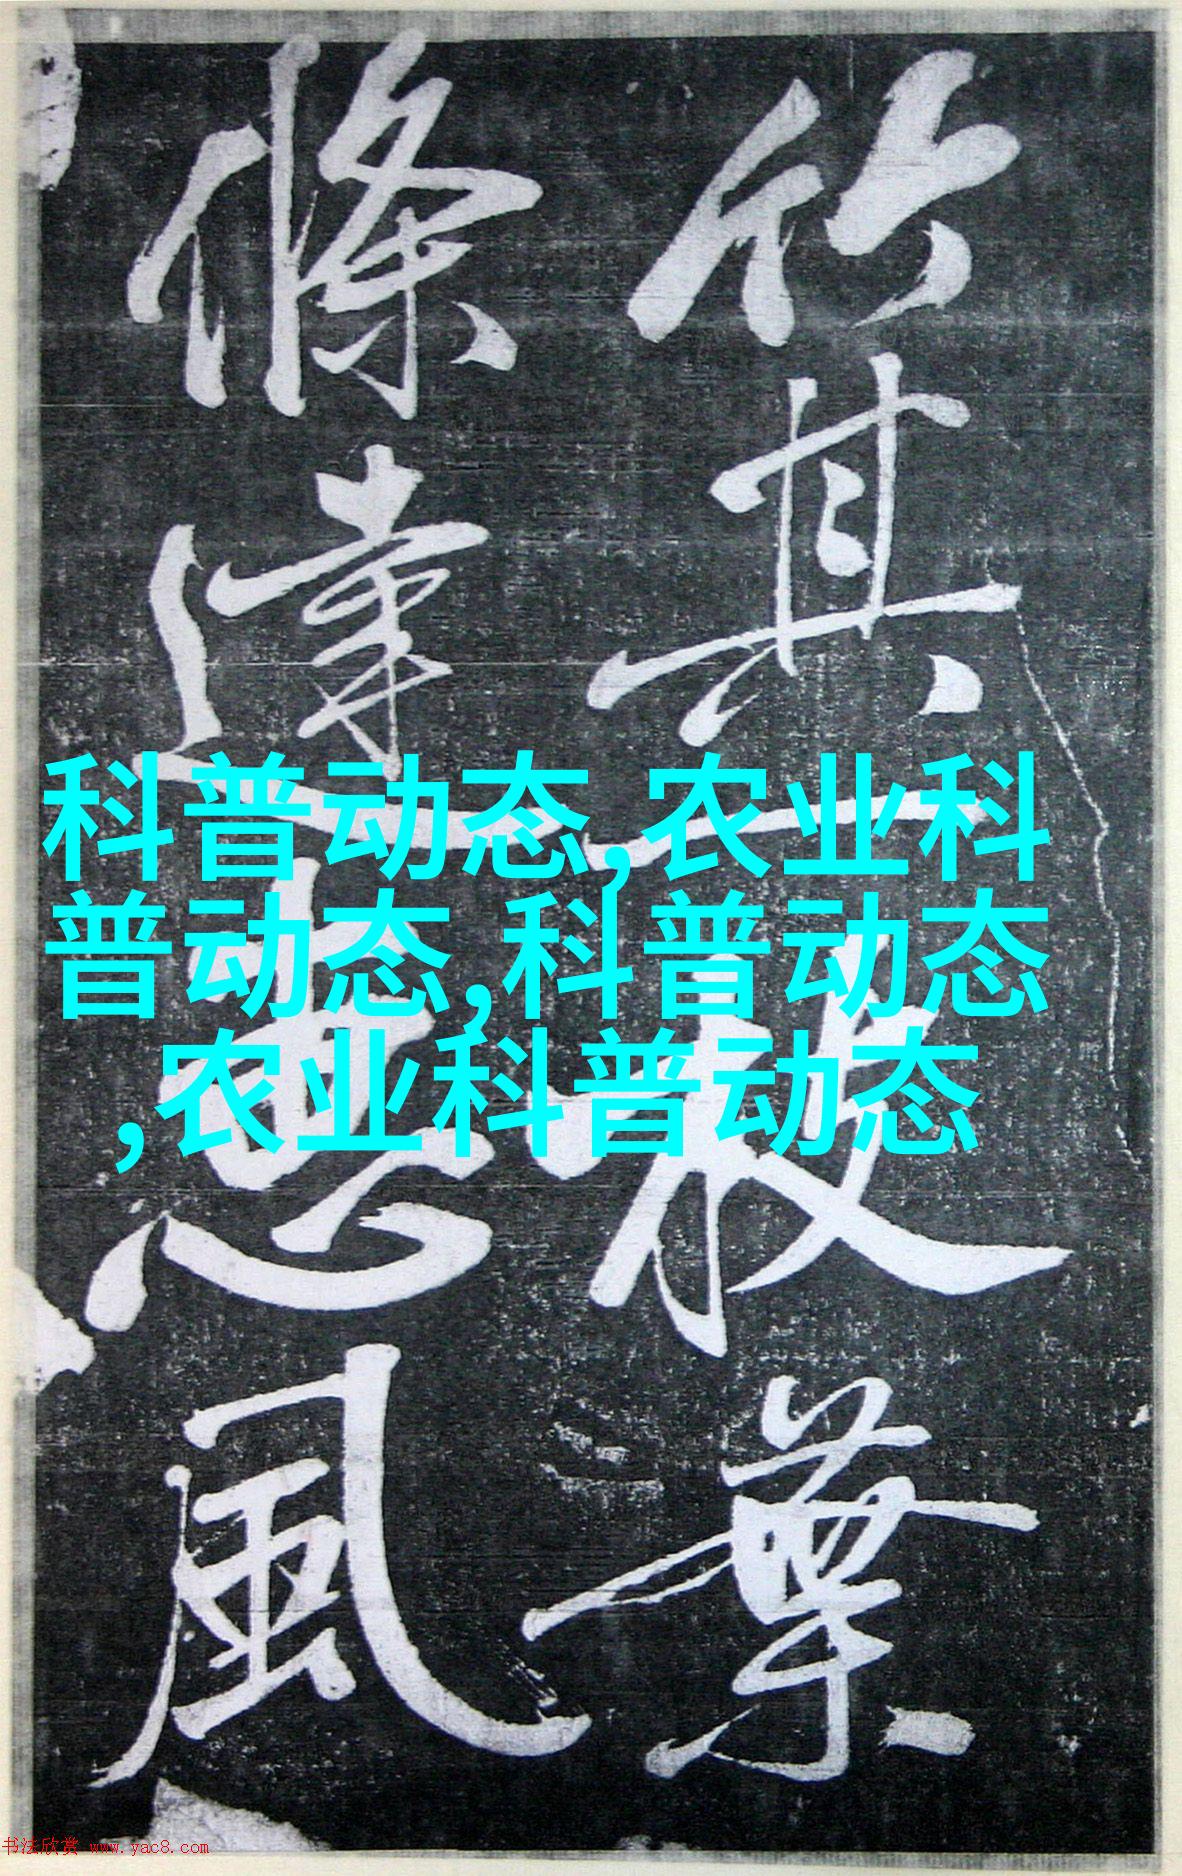 竹其一枝葉
條達惠風
科普动态,农业科
普动态,科普动态
,农业科普动态
书法欣赏 www.yac8.com